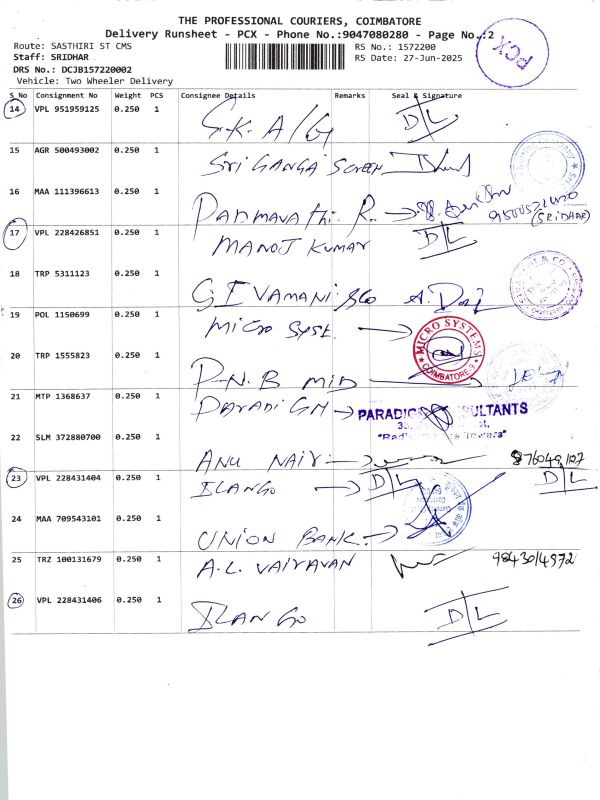 THE PROFESSIONAL COURIERS, COIMBATORE
Delivery Runsheet - PCX - Phone No.:9047080280 - Page No.:2
Route: SASTHIRI ST CMS
RS No.: 1572200
Staff: SRIDHAR
RS Date: 27-Jun-2025
DRS No.: DCJB157220002
Vehicle: Two Wheeler Delivery
PCX
S_No Consignment No Weight PCS Consignee Details Remarks Seal & Signature
14 VPL 951959125 0.250 1 S.K. A/G D/L
15 AGR 500493002 0.250 1 Sri GANGA SCREEN
16 MAA 111396613 0.250 1 PADMAVAthi. R.
(SRIDHAR)
17 VPL 228426851 0.250 1 MANOJ KUMAR D/L
18 TRP 5311123 0.250 1
19 POL 1150699 0.250 1 MICRO SYST.
MICRO SYSTEMS COIMBATORE-9
20 TRP 1555823 0.250 1 P.N.B MID
21 MTP 1368637 0.250 1 PARADIGM
22 SLM 372880700 0.250 1 ANU NAIR
23 VPL 228431404 0.250 1 ILANGO D/L D/L
24 MAA 709543101 0.250 1 UNION BANK.
25 TRZ 100131679 0.250 1 A.L. VAIRAVAN 9843014972
26 VPL 228431406 0.250 1 ILANGO D/L